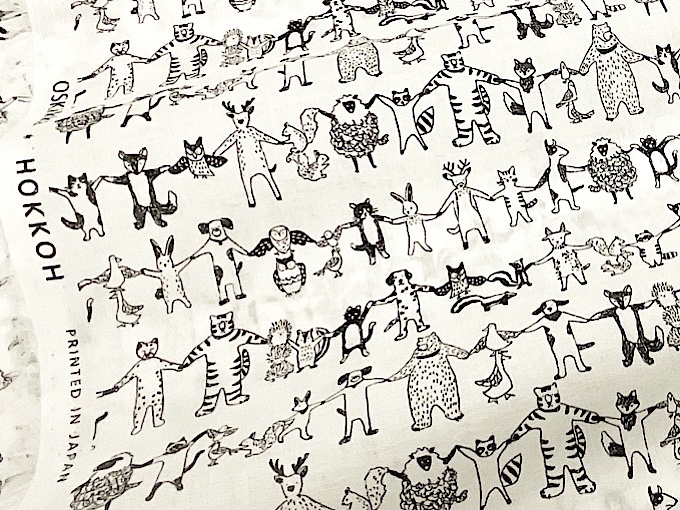 HOKKOH
PRINTED IN JAPAN